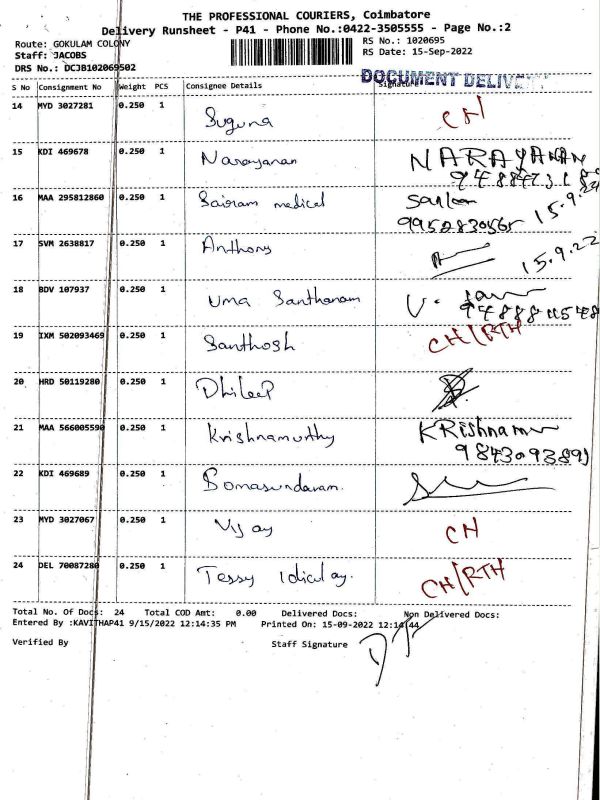 THE PROFESSIONAL COURIERS, Coimbatore
Delivery Runsheet - P41 - Phone No.:0422-3505555 - Page No.:2
Route: GOKULAM COLONY
Staff: JACOBS
DRS No.: DCJB102069502
RS No.: 1020695
RS Date: 15-Sep-2022
DOCUMENT DELIV
S No Consignment No Weight PCS Consignee Details Signature
14 MYD 3027281 0.250 1 Suguna CH
15 KDI 469678 0.250 1 Narayanan NARAYANAN
16 MAA 295812860 0.250 1 Sairam medical 15.9.22
9952830565
17 SVM 2638817 0.250 1 Anthony 15.9.22
18 BDV 107937 0.250 1 Uma Santhanam
19 IXM 502093469 0.250 1 Santhosh CH/RTH
20 HRD 50119280 0.250 1 Dhileep
21 MAA 566005590 0.250 1 Krishnamurthy KRishnam
9843093893
22 KDI 469689 0.250 1 Somasundaram.
23 MYD 3027067 0.250 1 Vijay CH
24 DEL 70087280 0.250 1 Tessy Idiculay. CH/RTH
Total No. Of Docs: 24 Total COD Amt: 0.00 Delivered Docs: Non Delivered Docs:
Entered By :KAVITHAP41 9/15/2022 12:14:35 PM Printed On: 15-09-2022 12:14:44
Verified By Staff Signature